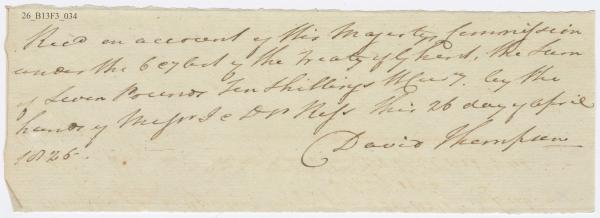 26_B13F3_034
Rec'd on account of His Majestys Commission
under the 6 & 7 of the Treaty of Ghent, the Sum
of Seven Pounds Ten Shillings by the
hands of Messrs J & D Ross this 26 day of April
1825.
David Thompson